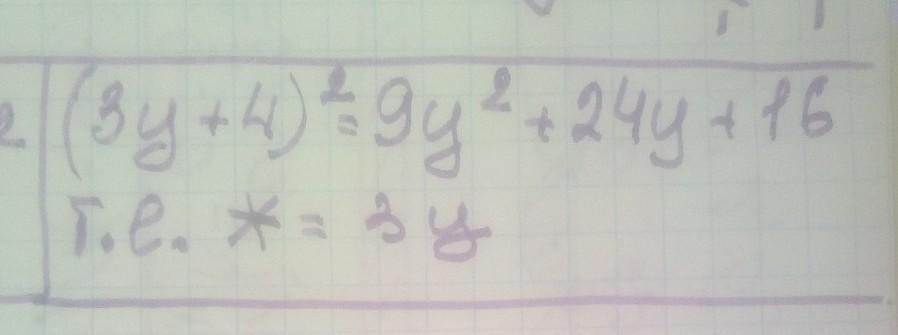 2 (3y+4)²=9y²+24y+16
т.е. * = 3y